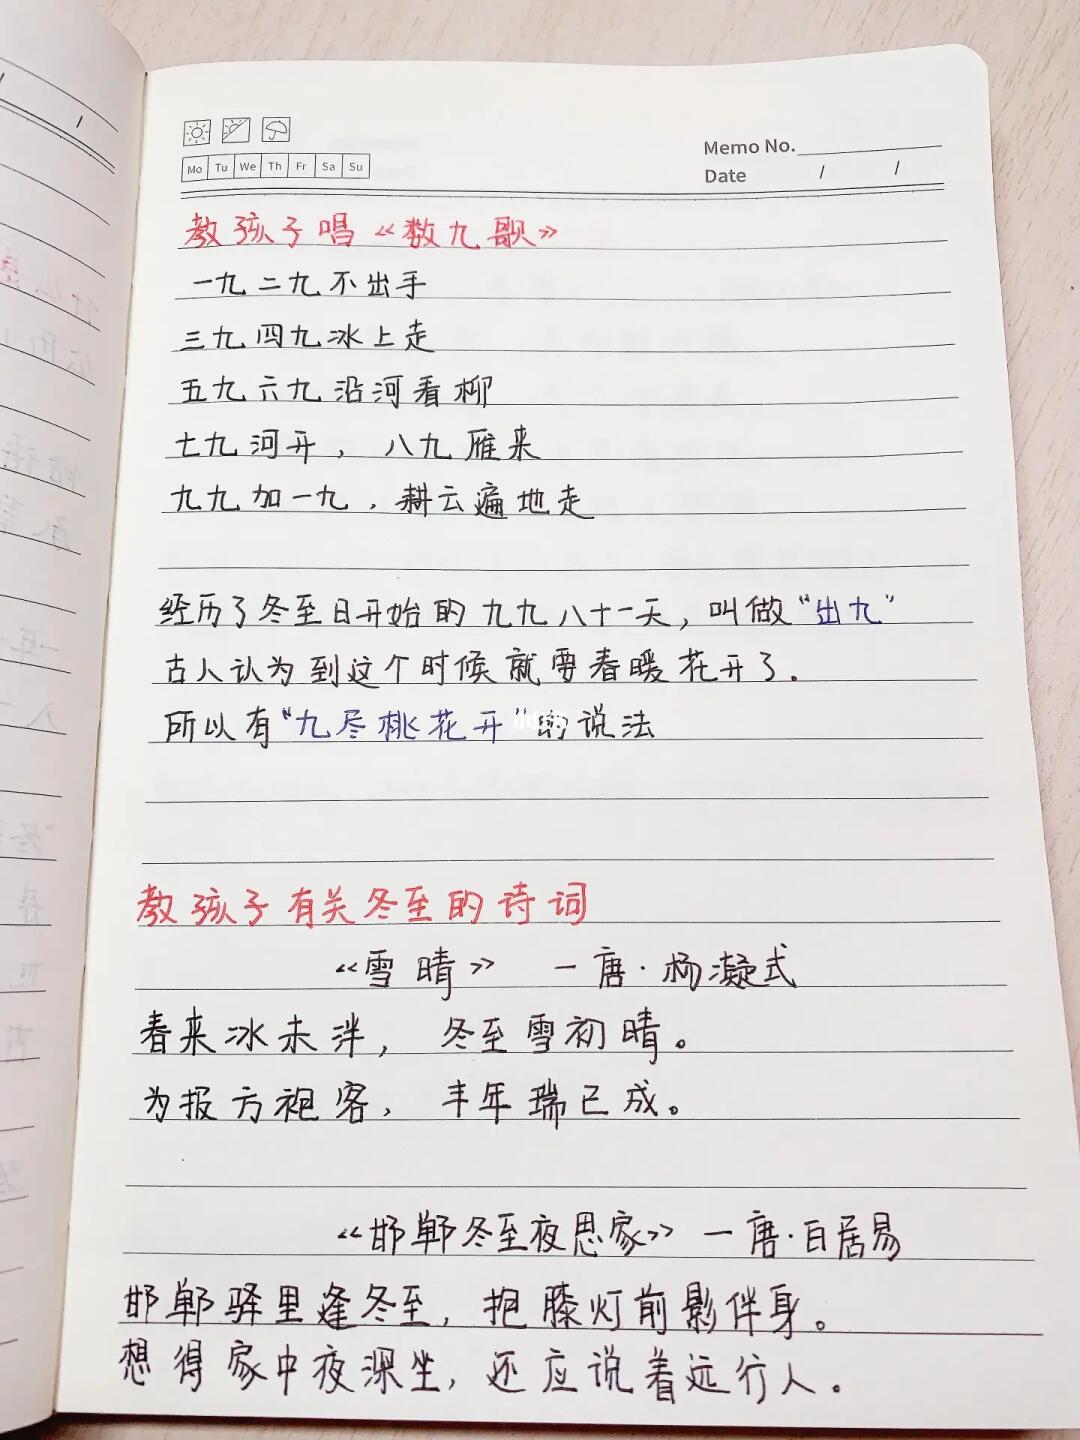 Mo Tu We Th Fr Sa Su
Memo No.
Date / /
教孩子唱《数九歌》
一九二九不出手
三九四九冰上走
五九六九沿河看柳
七九河开，八九雁来
九九加一九，耕云遍地走
经历了冬至日开始的九九八十一天，叫做“出九”
古人认为到这个时候就要春暖花开了.
所以有“九尽桃花开”的说法
教孩子有关冬至的诗词
《雪晴》 一唐·杨凝式
春来冰未泮，冬至雪初晴。
为报方袍客，丰年瑞已成。
《邯郸冬至夜思家》一唐·白居易
邯郸驿里逢冬至，抱膝灯前影伴身。
想得家中夜深坐，还应说着远行人.